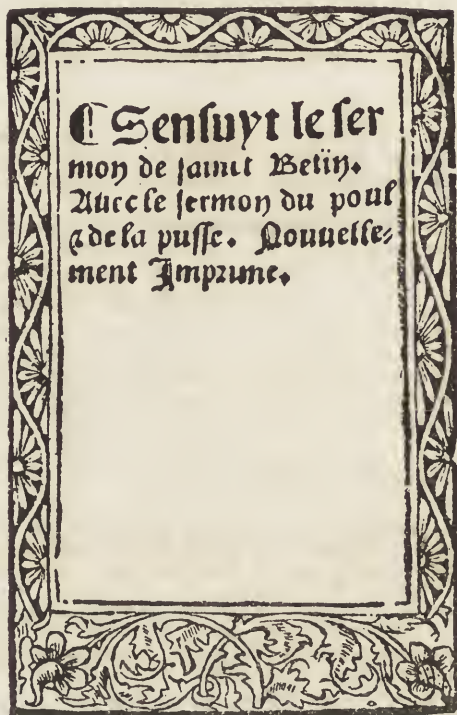 ⸿ Sensuyt le ser
mon de sainct Belin.
Auec le sermon du poul
⁊ de la pusse. Nouuelle⸗
ment Imprime.